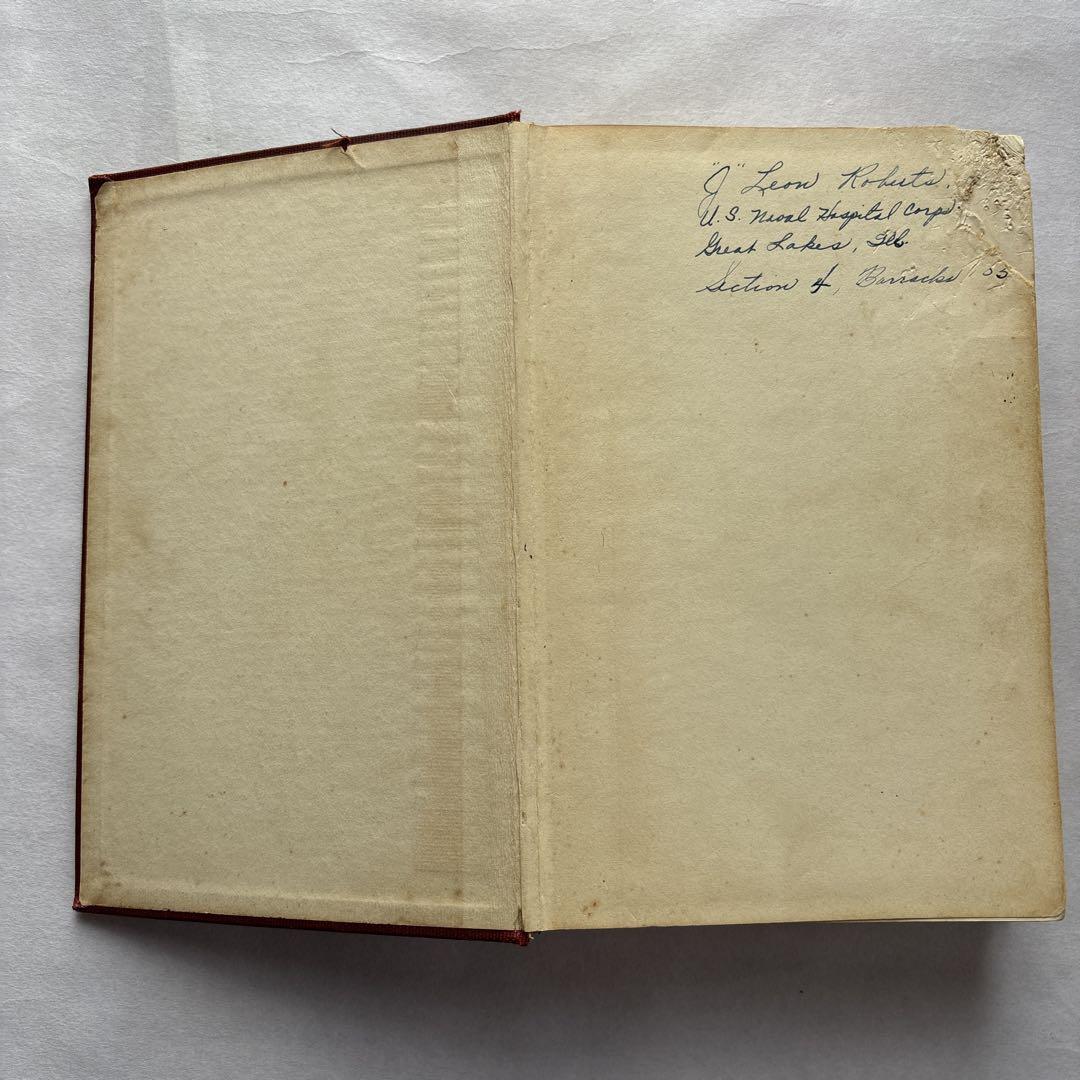 "J" Leon Roberts.
U.S. Naval Hospital Corps.
Great Lakes, Ill.
Section 4, Barracks